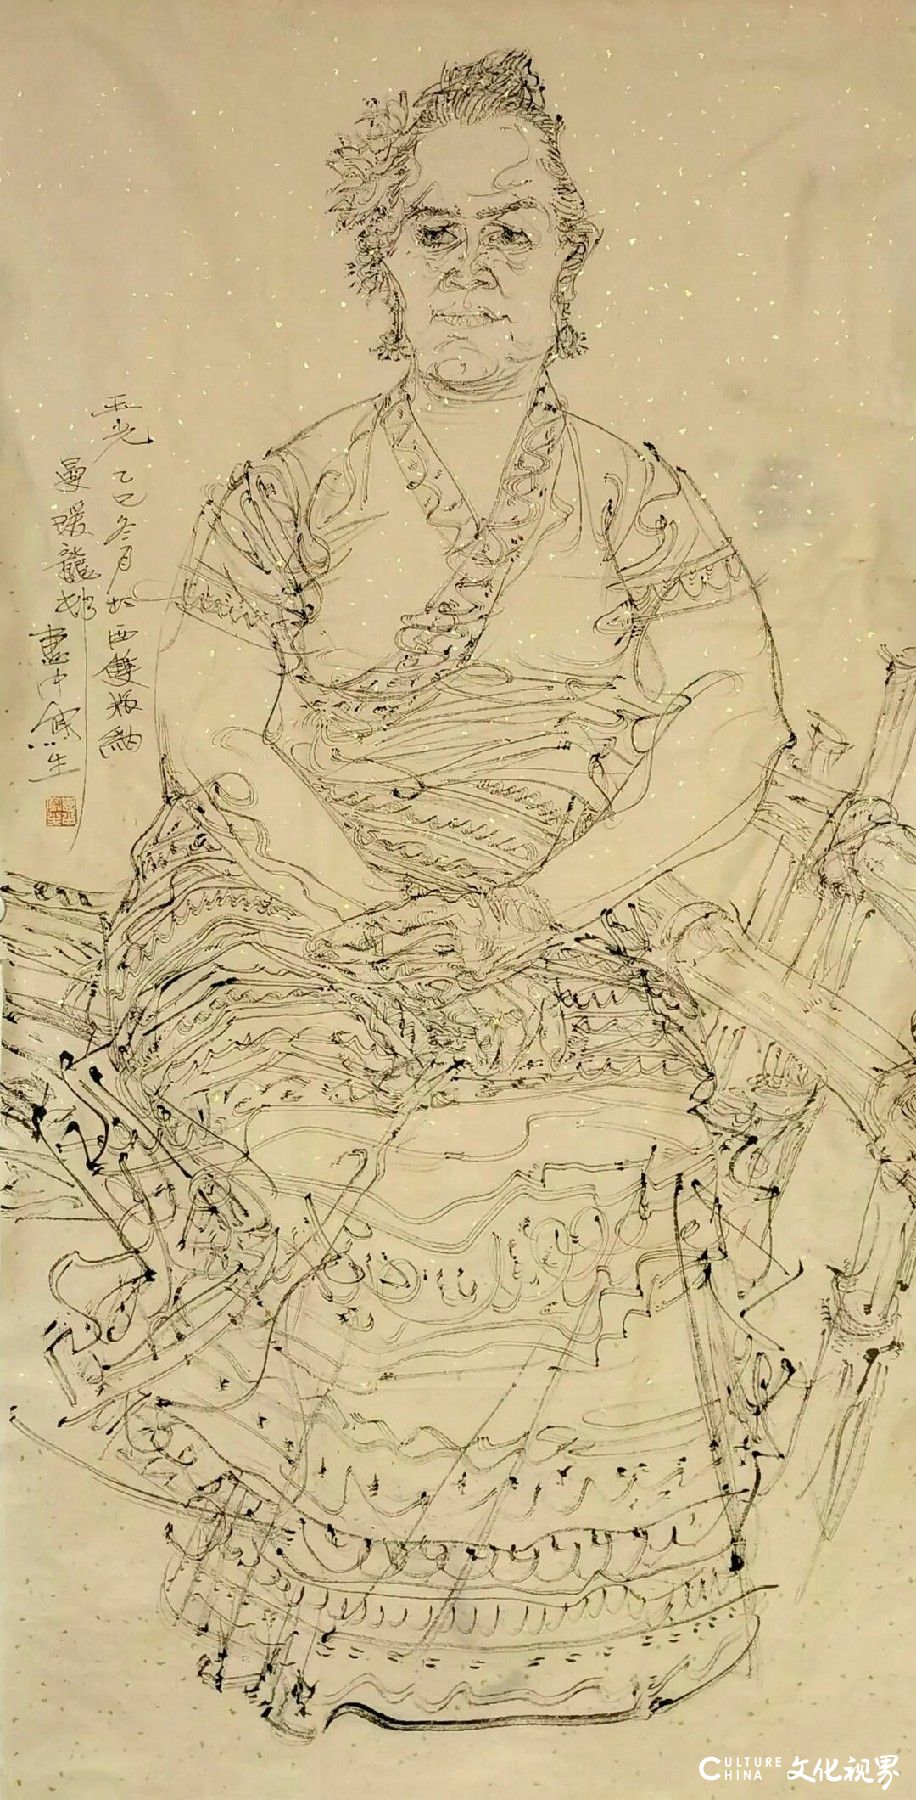 玉光 乙巳冬月於西雙版納
曼暖龍村
中寫生
CULTURE
CHINA
文化视界